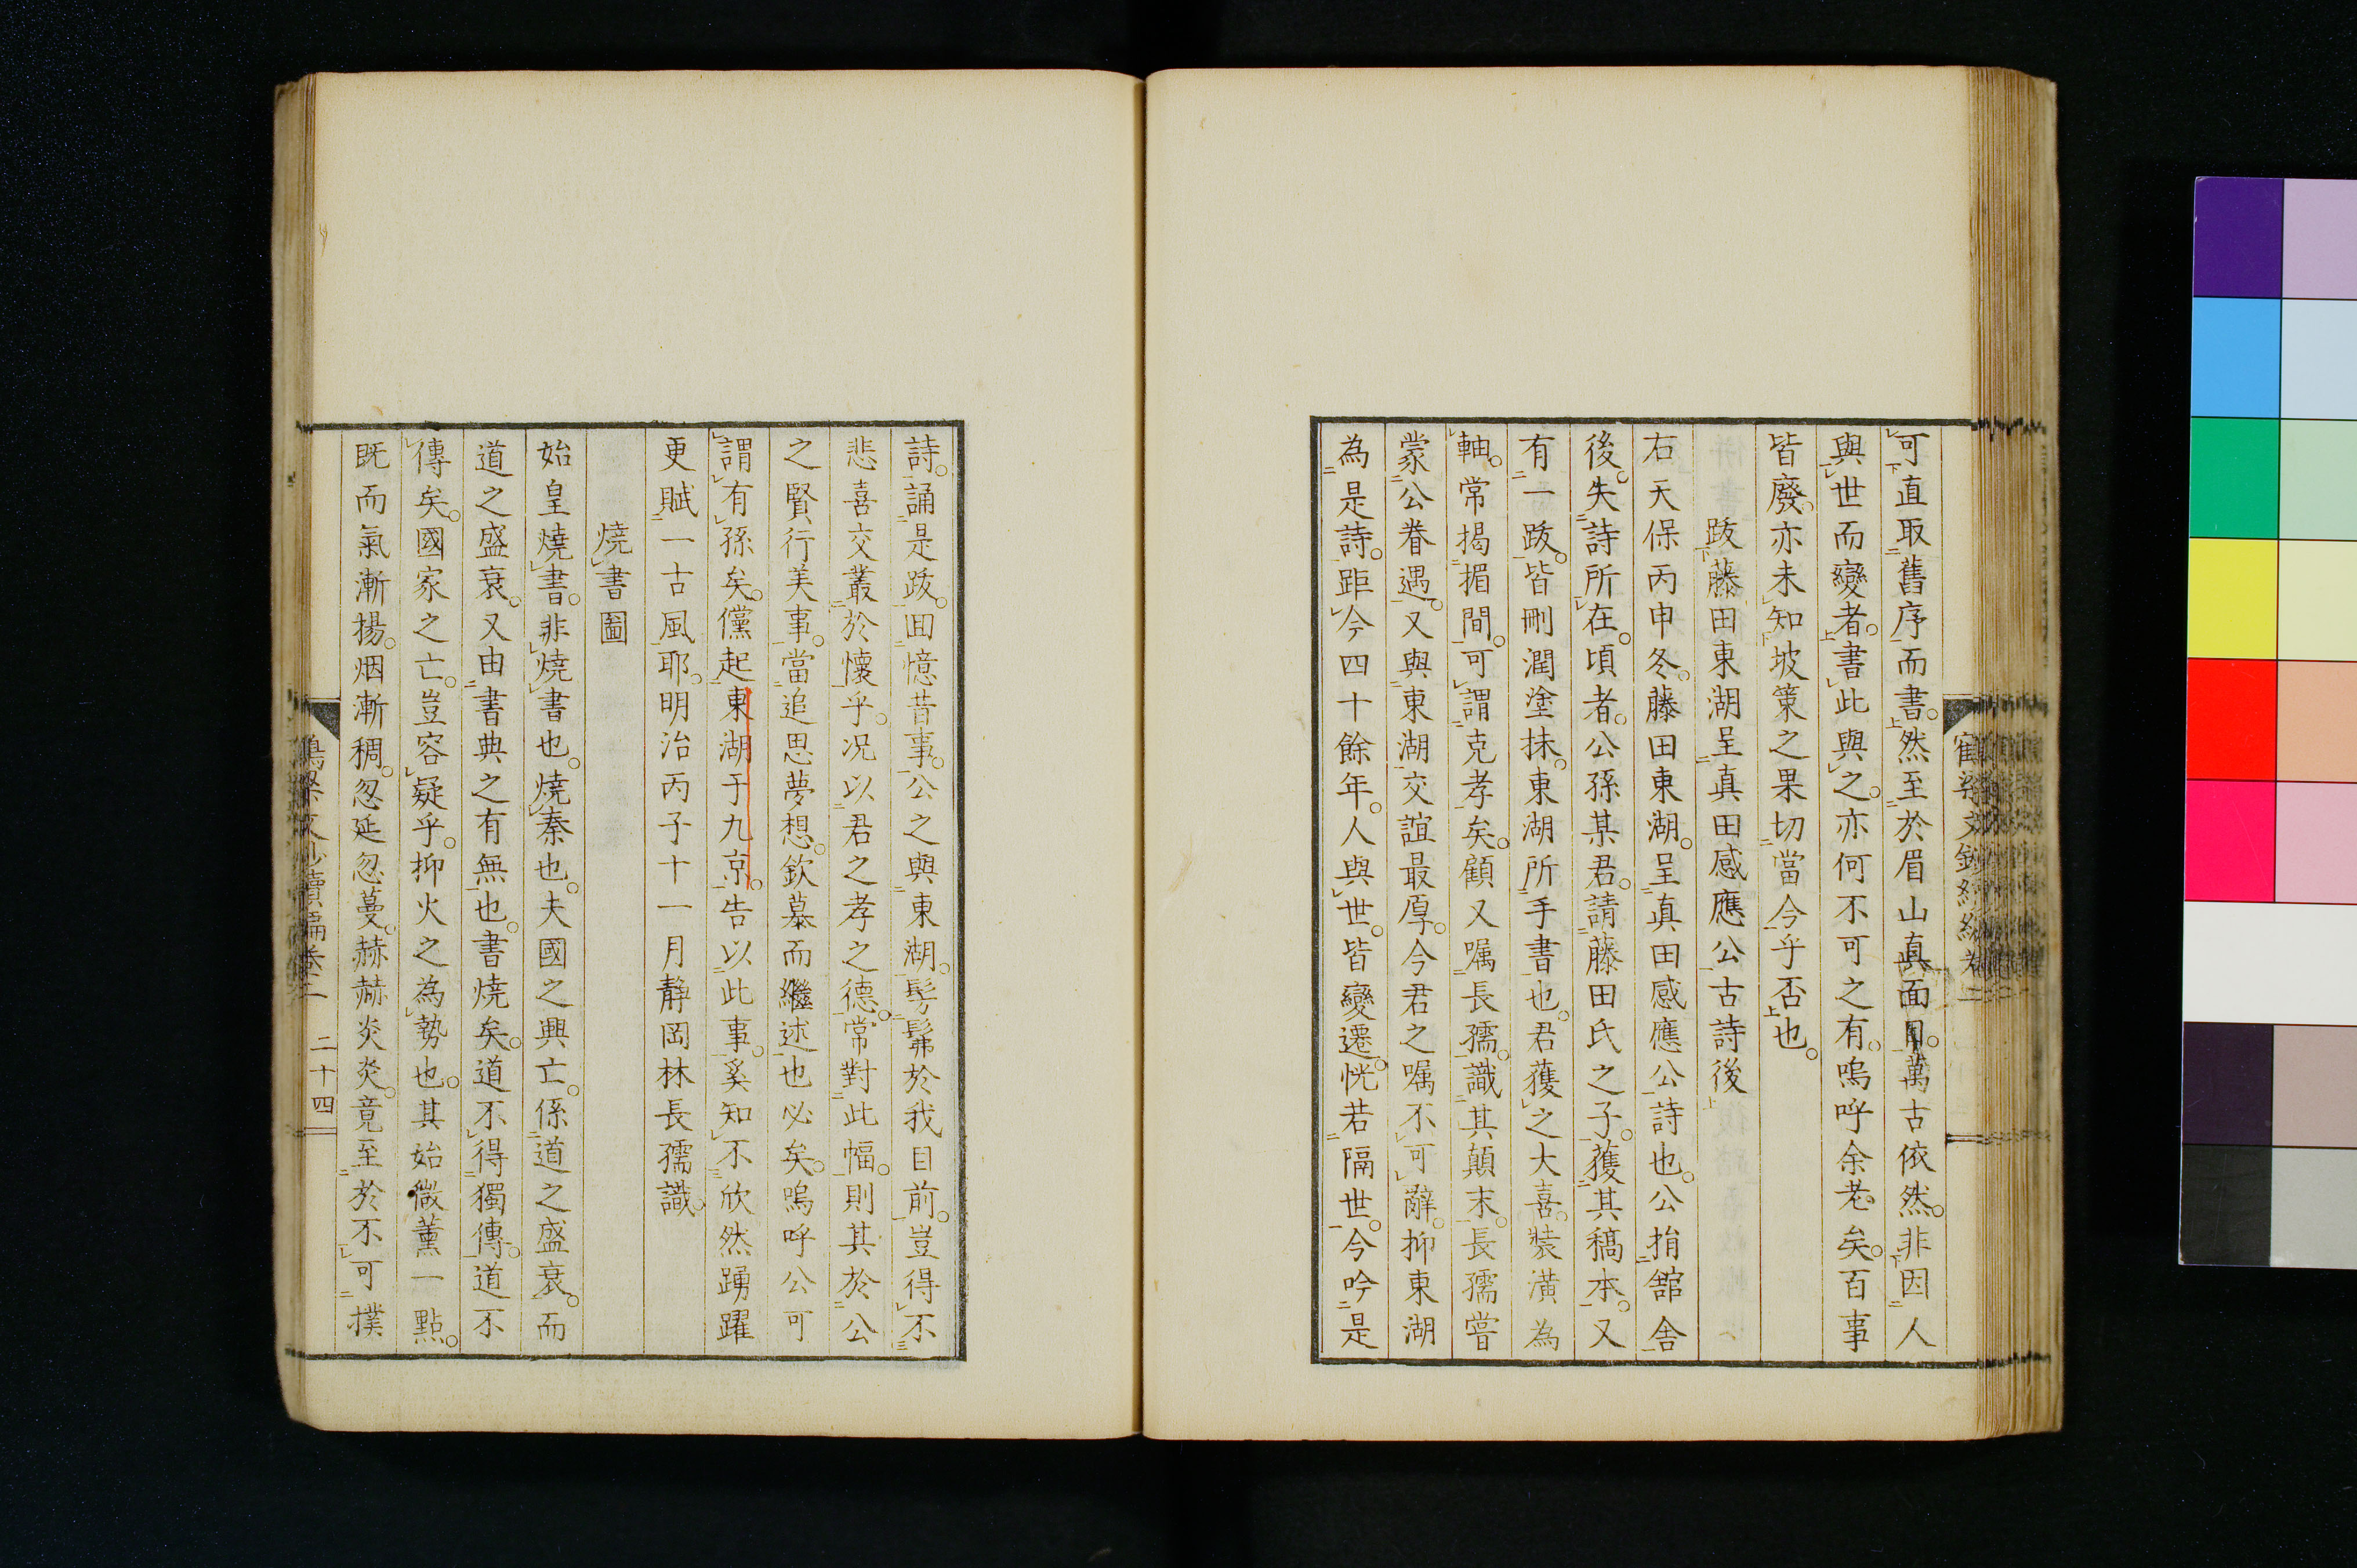 可直取舊序而書。然至於眉山真面目。萬古依然。非因人
與世而變者。書此與之。亦何不可之有。嗚呼余老矣。百事
皆廢。亦未知坡策之果切當今乎否也。
跋藤田東湖呈真田感應公古詩後
右天保丙申冬。藤田東湖。呈真田感應公詩也。公捐舘舍
後。失詩所在。頃者。公孫某君。請藤田氏之子。獲其稿本。又
有一跋。皆刪潤塗抹。東湖所手書也。君獲之大喜。裝潢為
軸。常揭楣間。可謂克孝矣。顧又嘱長孺。識其顛末。長孺嘗
蒙公眷遇。又與東湖交誼最厚。今君之嘱不可辭。抑東湖
為是詩。距今四十餘年。人與世。皆變遷。恍若隔世。今吟是
詩。誦是跋。回憶昔事。公之與東湖。髣髴於我目前。豈得不
悲喜交叢於懷乎。况以君之孝之德。常對此幅。則其於公
之賢行美事。當追思夢想。欽慕而繼述也必矣。嗚呼公可
謂有孫矣。儻起東湖于九京。告以此事。奚知不欣然踴躍
更賦一古風耶。明治丙子十一月靜岡林長孺識。
燒書圖
始皇燒書。非燒書也。燒秦也。夫國之興亡。係道之盛衰。而
道之盛衰。又由書典之有無也。書燒矣。道不得獨傳。道不
傳矣。國家之亡。豈容疑乎。抑火之為勢也。其始微薰一點。
既而氣漸揚。烟漸稠。忽延忽蔓。赫赫炎炎。竟至於不可撲
二十四